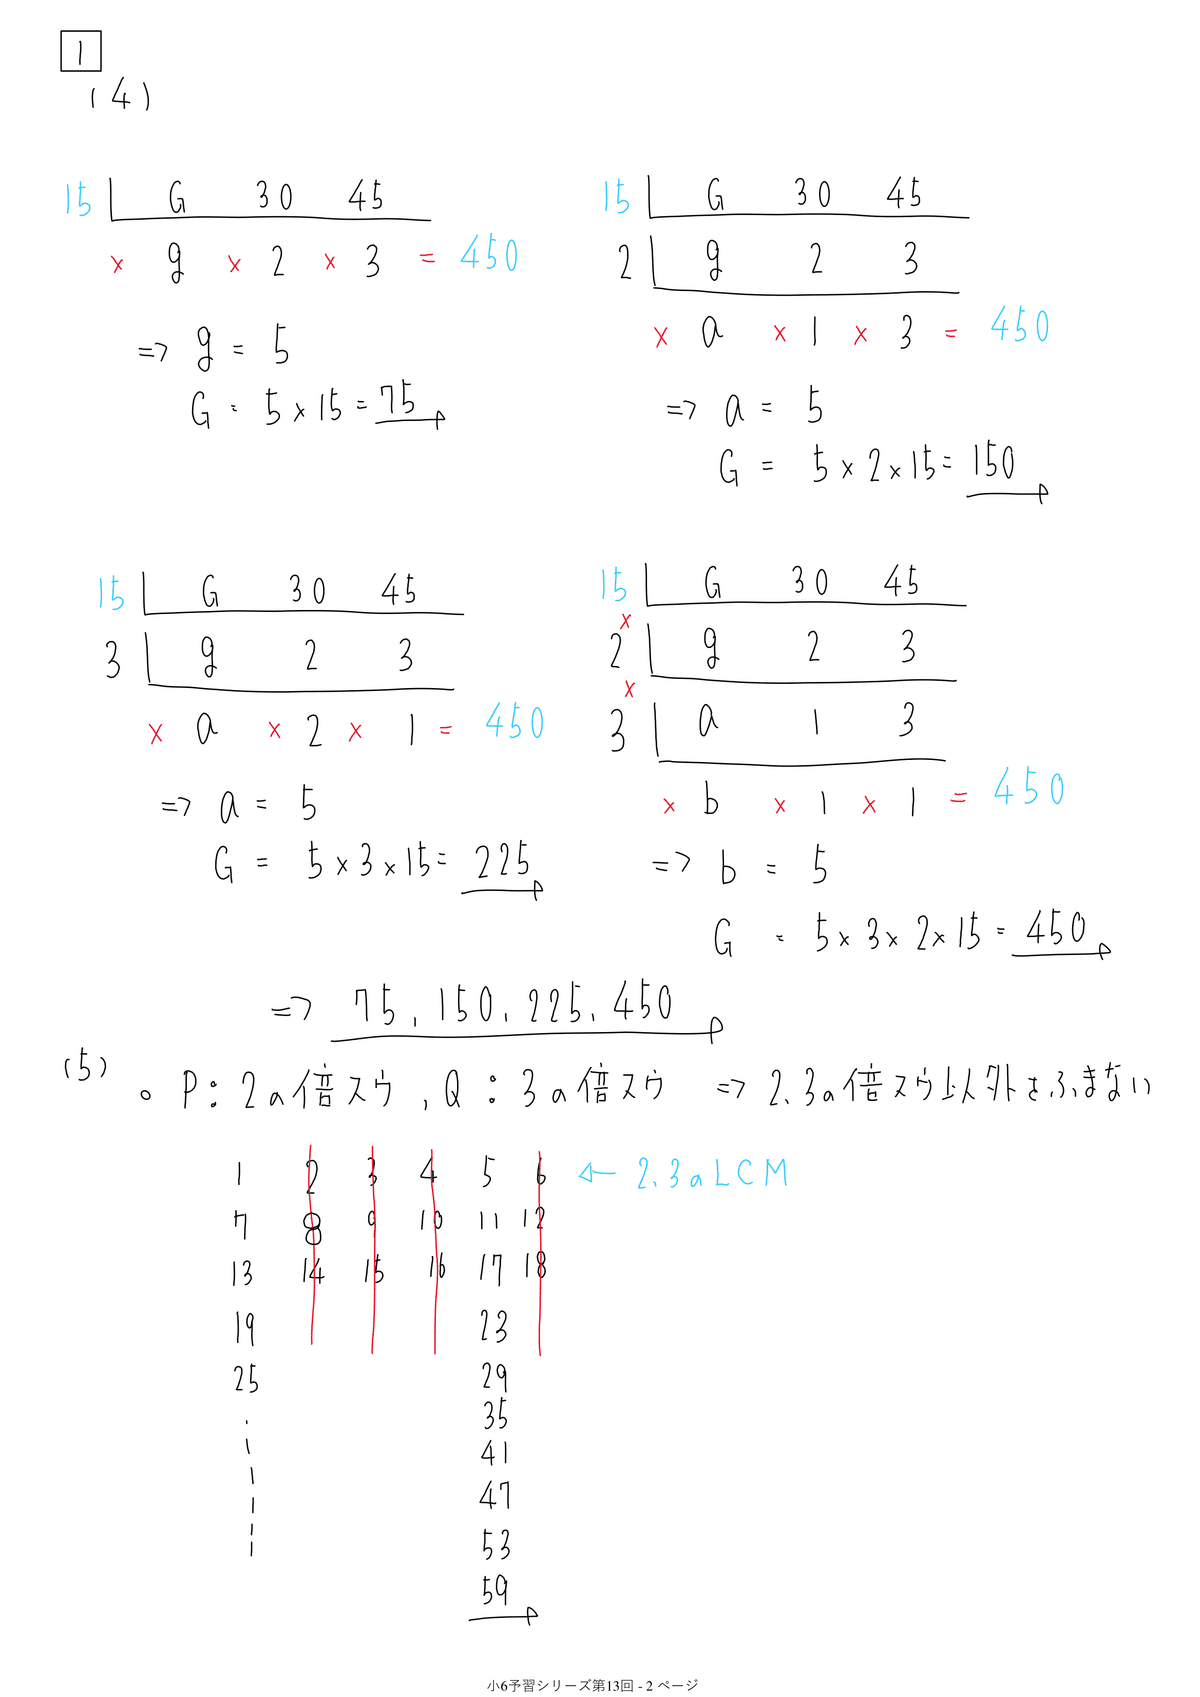 1
(4)
15 G 30 45
× g × 2 × 3 = 450
=> g = 5
G = 5×15=75
15 G 30 45
2 g 2 3
× a × 1 × 3 = 450
=> a = 5
G = 5×2×15=150
15 G 30 45
3 g 2 3
× a × 2 × 1 = 450
=> a = 5
G = 5×3×15=225
15 G 30 45
×
2 g 2 3
×
3 a 1 3
× b × 1 × 1 = 450
=> b = 5
G = 5×3×2×15=450
=> 75, 150, 225, 450
(5)
○ P:2の倍スウ, Q:3の倍スウ => 2,3の倍スウ以外をふまない
1 2 3 4 5 6 ← 2,3のLCM
7 8 9 10 11 12
13 14 15 16 17 18
19 23
25 29
35
41
47
53
59
小6予習シリーズ第13回 - 2 ページ